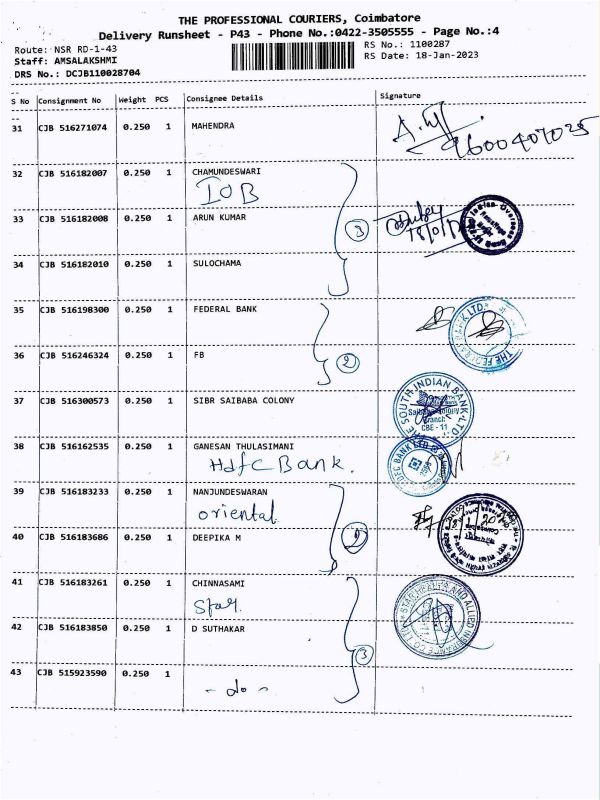 THE PROFESSIONAL COURIERS, Coimbatore
Delivery Runsheet - P43 - Phone No.:0422-3505555 - Page No.:4
Route: NSR RD-1-43
RS No.: 1100287
Staff: AMSALAKSHMI
RS Date: 18-Jan-2023
DRS No.: DCJB110028704
S No Consignment No Weight PCS Consignee Details Signature
31 CJB 516271074 0.250 1 MAHENDRA
9600407025
32 CJB 516182007 0.250 1 CHAMUNDESWARI
IOB
33 CJB 516182008 0.250 1 ARUN KUMAR
3
34 CJB 516182010 0.250 1 SULOCHAMA
35 CJB 516198300 0.250 1 FEDERAL BANK
36 CJB 516246324 0.250 1 FB
2
37 CJB 516300573 0.250 1 SIBR SAIBABA COLONY
THE SOUTH INDIAN BANK LTD
CBE - 11
38 CJB 516162535 1 0.250 1 GANESAN THULASIMANI
HdfC Bank.
39 CJB 516183233 0.250 1 NANJUNDESWARAN
oriental
40 CJB 516183686 0.250 1 DEEPIKA M
41 CJB 516183261 0.250 1 CHINNASAMI
Star.
STAR HEALTH AND ALLIED INSURANCE CO
42 CJB 516183850 0.250 1 D SUTHAKAR
3
43 CJB 515923590 0.250 1
- do -